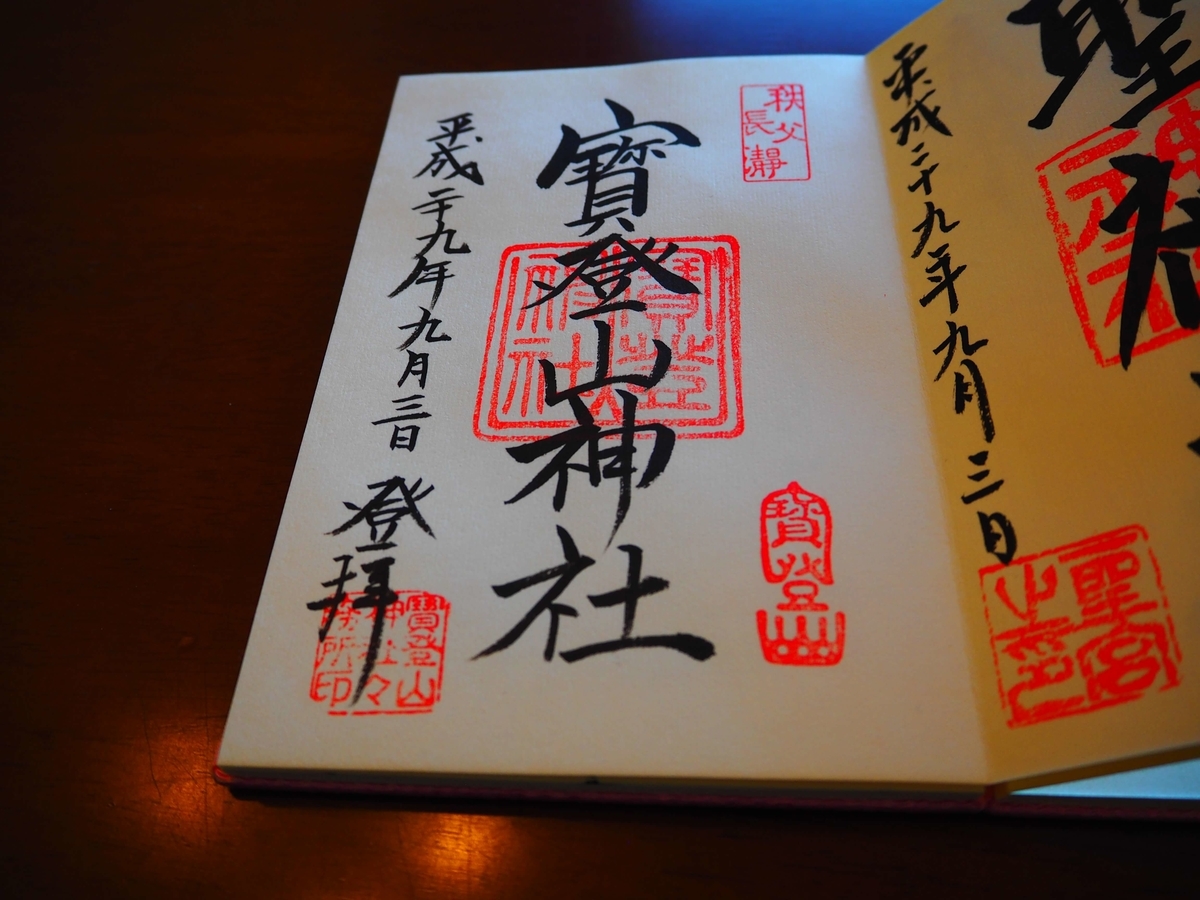 聖
神社
平成二十九年九月三日
聖宮
之印
秩父
長瀞
寶登山神社
寶登
神社
寶登山
平成二十九年九月三日
登拝
寶登山
神社々
務所印